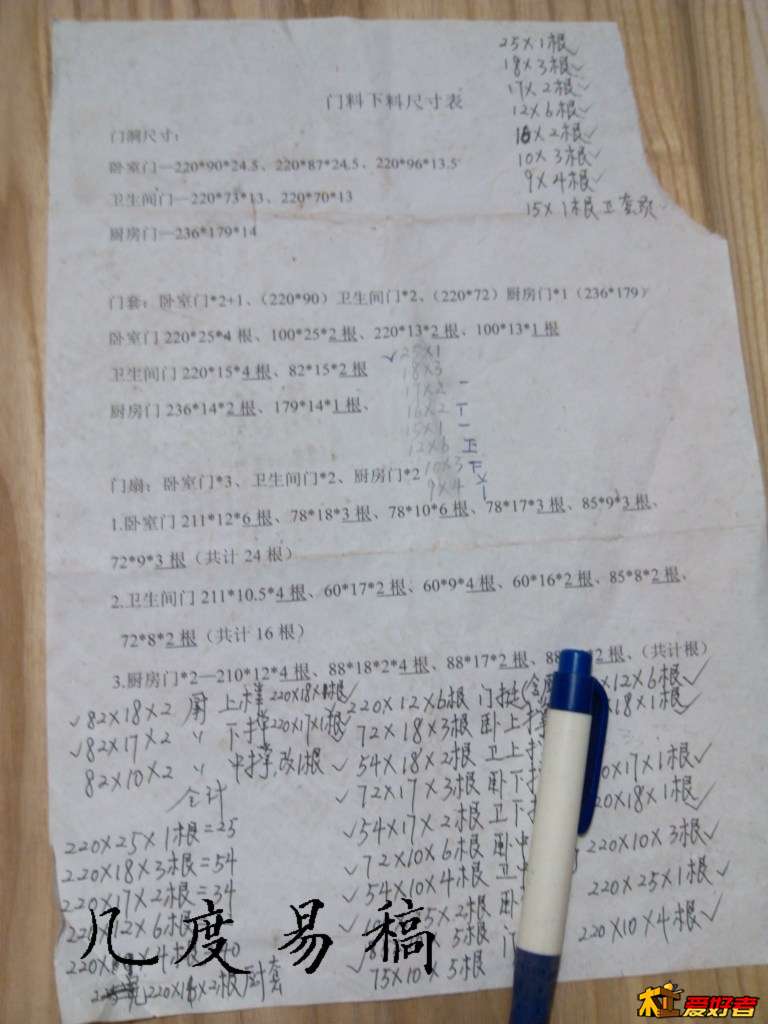 25×1根
18×3根
17×2根
12×6根
16×2根
10×3根
9×4根
15×1根 卫套顶
门料下料尺寸表
门洞尺寸:
卧室门—220*90*24.5、220*87*24.5、220*96*13.5
卫生间门—220*73*13、220*70*13
厨房门—236*179*14
门套:卧室门*2+1、(220*90)卫生间门*2、(220*72)厨房门*1(236*179)
卧室门 220*25*4 根、100*25*2 根、220*13*2 根、100*13*1 根
卫生间门 220*15*4 根、82*15*2 根
厨房门 236*14*2 根、179*14*1 根、
25×1
18×3
17×2 一
16×2 丅
15×1 一
12×6 正
10×3 下
9×4
门扇:卧室门*3、卫生间门*2、厨房门*2
1.卧室门 211*12*6 根、78*18*3 根、78*10*6 根、78*17*3 根、85*9*3 根、
72*9*3 根(共计 24 根)
2.卫生间门 211*10.5*4 根、60*17*2 根、60*9*4 根、60*16*2 根、85*8*2 根、
72*8*2 根(共计 16 根)
3.厨房门*2—210*12*4 根、88*18*2*4 根、88*17*2 根、88 2 根、(共计根)
82×18×2 厨 上撑 220×18×1根
82×17×2 〃 下撑 220×17×1根
82×10×2 〃 中撑,改1根
合计
220×25×1根=25
220×18×3根=54
220×17×2根=34
220×12×6根
220× ×4根 40
220×16×2根 厨套
220×12×6根 门挺
72×18×3根 卧上撑
54×18×2根 卫上
72×17×3根 卧下
54×17×2根 卫下
72×10×6根 卧中
54×10×4根 卫中
5×2根 卧
5根 门
75×10×5根
×12×6根
×18×1根
0×17×1根
20×18×1根
220×10×3根
220×25×1根
220×10×4根
几度易稿
木工爱好者